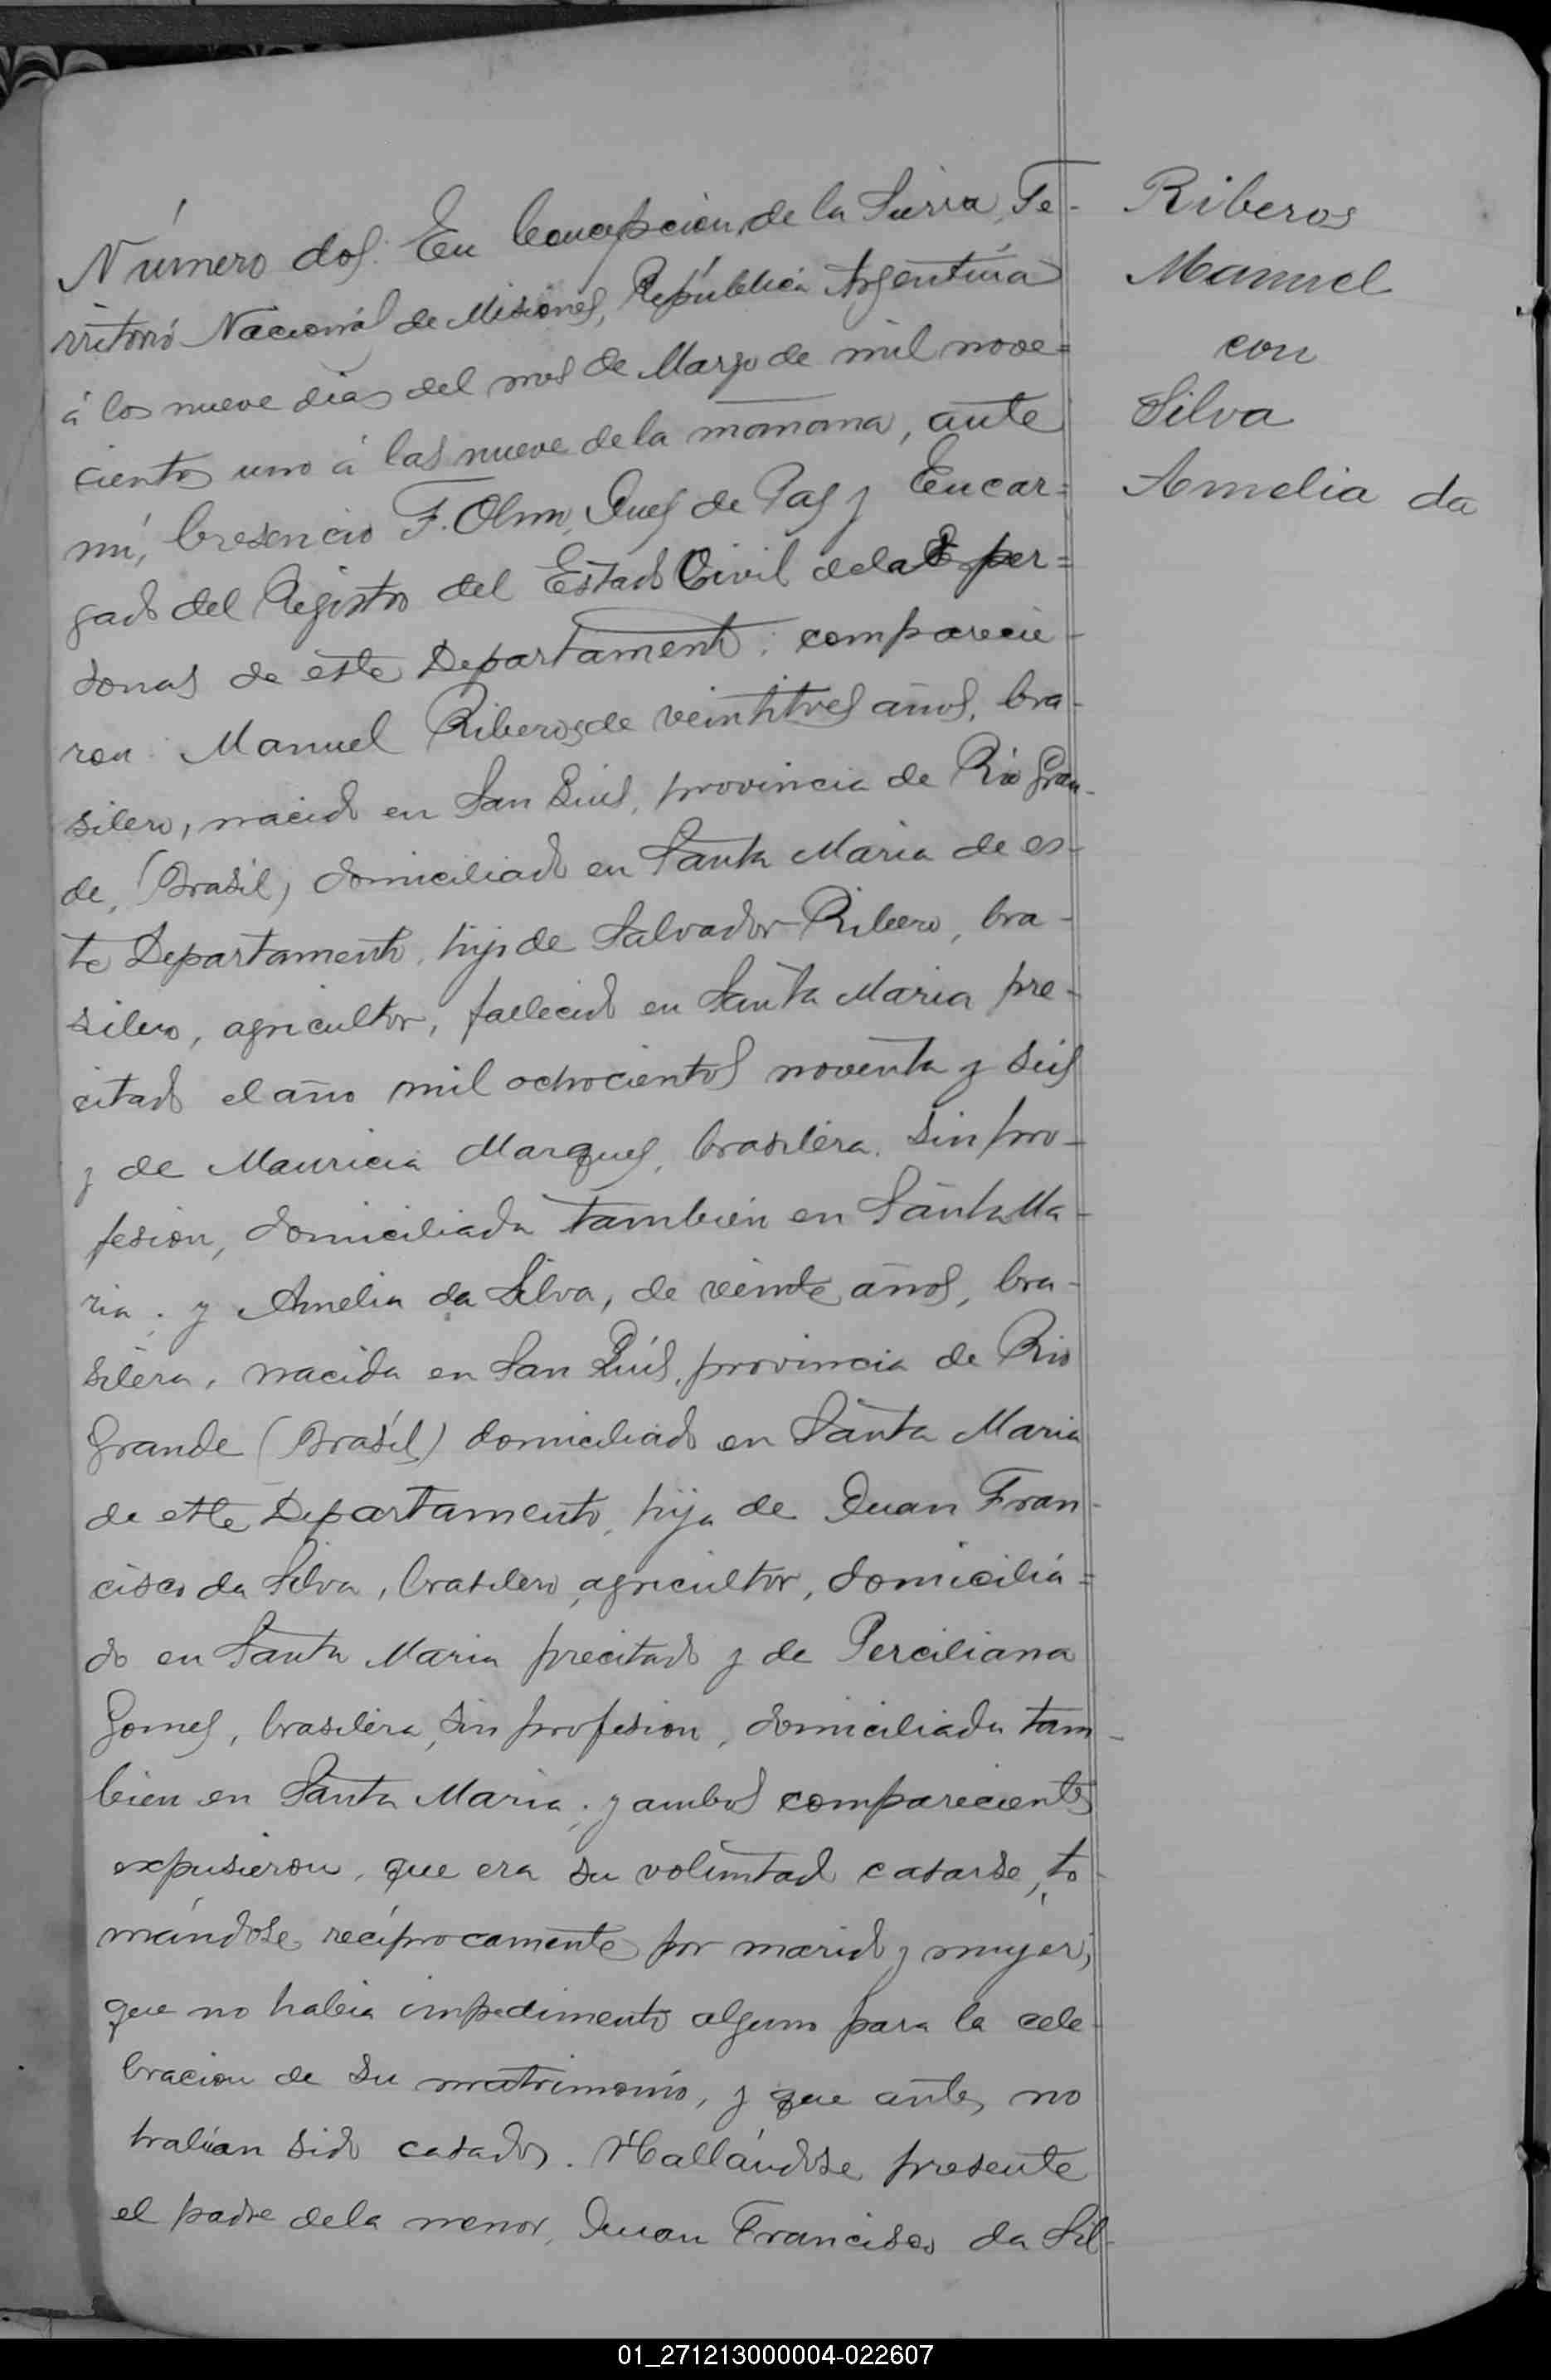 Número dos. En Concepcion de la Sierra, Te-
rritorio Nacional de Misiones, República Argentina
á los nueve dias del mes de Marzo de mil nove=
cientos uno á las nueve de la mañana, ante
mi, Cresencio F. Olmo, Juez de Paz y Encar=
gado del Registro del Estado Civil de las per=
sonas de este Departamento: comparecie-
ron Manuel Riberos de veintitres años, bra-
silero, nacido en San Luis, provincia de Rio Gran-
de, (Brasil) domiciliado en Santa Maria de es-
te Departamento, hijo de Salvador Ribero, bra-
silero, agricultor, fallecido en Santa Maria pre-
citado el año mil ochocientos noventa y seis
y de Mauricia Marques, brasilera, sin pro-
fesion, domiciliada tambien en Santa Ma-
ria; y Amelia da Silva, de veinte años, bra-
silera, nacida en San Luis, provincia de Rio
Grande (Brasil) domiciliado en Santa Maria
de este Departamento, hija de Juan Fran-
cisco da Silva, brasilero, agricultor, domicilia=
do en Santa Maria precitado y de Perciliana
Gomes, brasilera, sin profesion, domiciliada tam-
bien en Santa Maria; y ambos comparecientes
expusieron, que era su voluntad casarse, to-
mándose recíprocamente por marido y mujer;
que no habia impedimento alguno para la cele-
bracion de su matrimonio, y que antes no
habian sido casados. Hallándose presente
el padre de la menor, Juan Francisco da Sil-
Riberos
Manuel
con
Silva
Amelia da
01_271213000004-022607